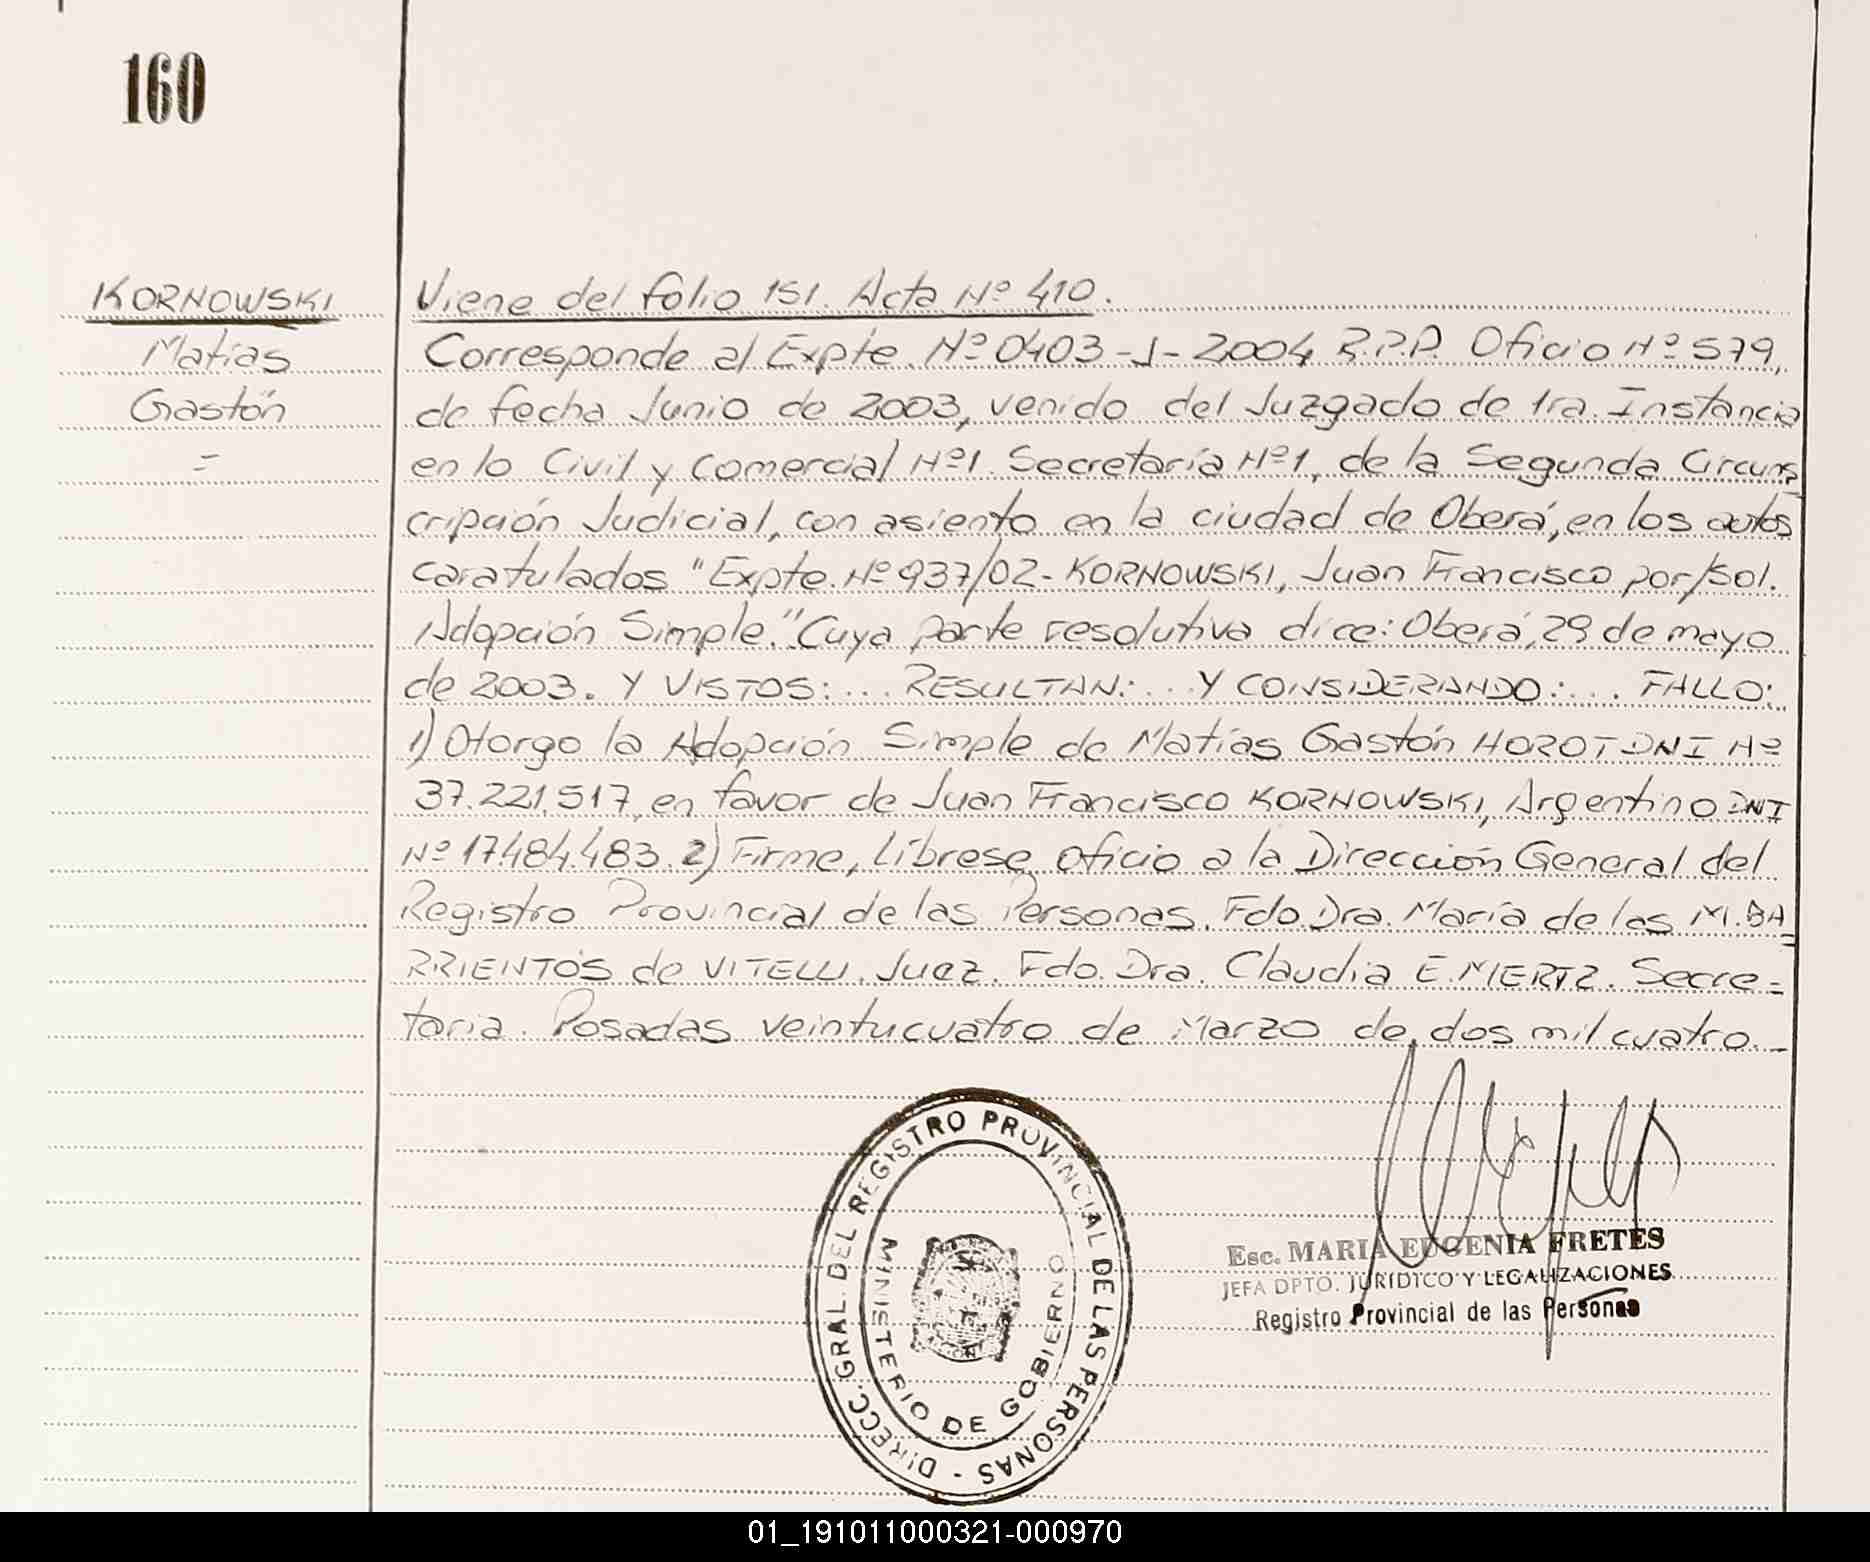 160
KORNOWSKI
Matías
Gastón
=
Viene del folio 151. Acta Nº 410.
Corresponde al Expte. Nº 0403-J-2004 R.P.P. Oficio Nº 579,
de fecha Junio de 2003, venido del Juzgado de 1ra. Instancia
en lo Civil y Comercial Nº1. Secretaría Nº1, de la Segunda Circuns
cripción Judicial, con asiento en la ciudad de Oberá, en los autos
caratulados "Expte. Nº 937/02- KORNOWSKI, Juan Francisco por/sol.
Adopción Simple." Cuya parte resolutiva dice: Oberá, 29 de mayo
de 2003. Y VISTOS:... RESULTAN:... Y CONSIDERANDO:.... FALLO:
1) Otorgo la Adopción Simple de Matías Gastón HOROT DNI Nº
37.221.517, en favor de Juan Francisco KORNOWSKI, Argentino DNI
Nº 17.484.483. 2) Firme, líbrese oficio a la Dirección General del
Registro Provincial de las Personas. Fdo. Dra. María de las M. BA=
RRIENTOS de VITELLI. Juez. Fdo. Dra. Claudia E. MERTZ. Secre=
taria. Posadas veintucuatro de Marzo de dos mil cuatro.-
DIRECC. GRAL. DEL REGISTRO PROVINCIAL DE LAS PERSONAS -
MINISTERIO DE GOBIERNO
Esc. MARIA EUGENIA FRETES
JEFA DPTO. JURIDICO Y LEGALIZACIONES
Registro Provincial de las Personas
01_191011000321-000970